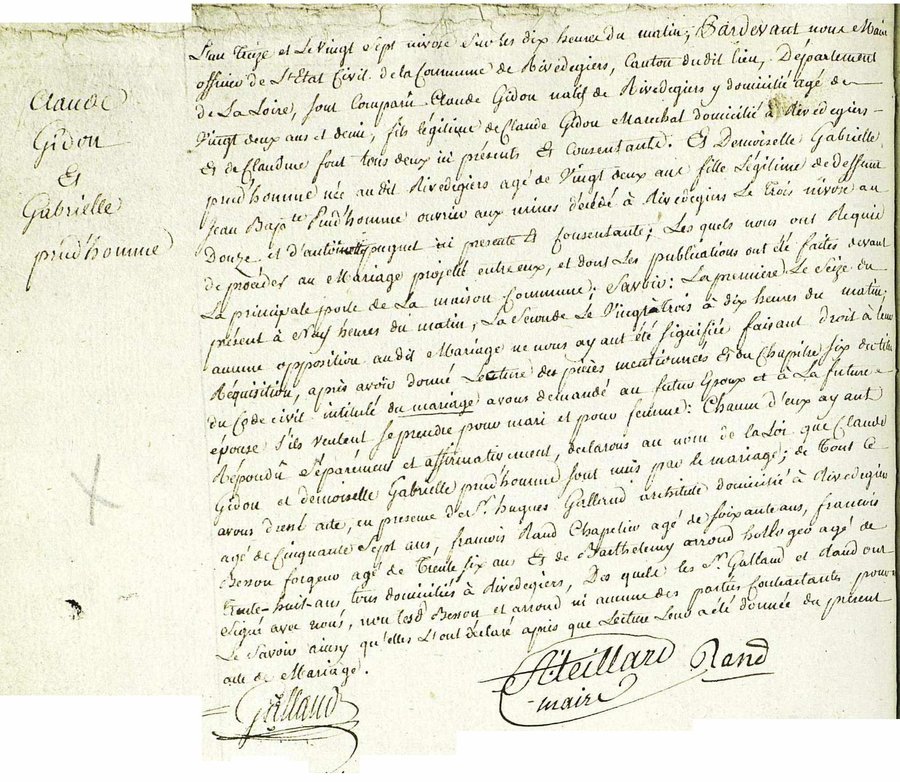 Claude
Gidon
Et
Gabrielle
prud'homme
L'an treize et Le vingt Sept nivose Sur les dix heures du matin; Pardevant nous Maire
officier de L'Etat Civil de la Commune de Rivedegiers, Canton dudit lieu, Département
de La Loire, sont Comparu Claude Gidon natif de Rivedegiers y domicilié agé de
Vingt deux ans et demi, fils légitime de Claude Gidon Marechal domicilié à Rivedegiers
Et de Claudine font tous deux ici présents Et Consentants. Et Demoiselle Gabrielle
prud'homme née audit Rivedegiers agé de Vingt deux ans fille Légitime de deffunt
Jean Bapte. Prud'homme ouvrier aux mines décédé à Rivedegiers Le trois nivose an
Douze et d'antoinette pognet ici presente Et Consentante; Les quels nous ont Requis
De procéder au Mariage projetté entre eux, et dont Les publications ont été faites devant
La principale porte de La maison Commune: Savoir: La premiere Le Seize du
présent à Neuf heures du matin, La Seconde Le Vingt trois à dix heures du matin;
aucune opposition audit Mariage ne nous ayant été signifiée faisant droit à leur
Réquisition, après avoir donné Lecture des pièces mentionnées Et du Chapitre Six du titre
du Code civil intitulé du mariage avons demandé au futur Epoux et à La future
épouse S'ils veulent Se prendre pour mari et pour femme: Chacun d'eux ayant
Répondû Séparément et affirmativement, declarons au nom de la Loi que Claude
Gidon et demoiselle Gabrielle prud'homme sont unis par le mariage; de Tout ce
avons dressé acte, en presence de Sr. hugues Galland architecte domicilié à Rivedegiers
agé de Cinquante Sept ans, francois Rand Chapelier agé de soixante ans, francois
Besson forgeur agé de Trente six ans Et de Barthelemy arrond horlogeo agé de
Trente-huit ans, tous domiciliés à Rivedegiers, Des quels les Sr. Galland et Rand ont
Signé avec nous, non Besson et arrond ni aucune des parties Contractantes pour
Le Savoir ainsy qu'elles L'ont déclaré après que Lecture Leur a été donnée du présent
acte de Mariage.
Galland
Teillard
maire
Rand